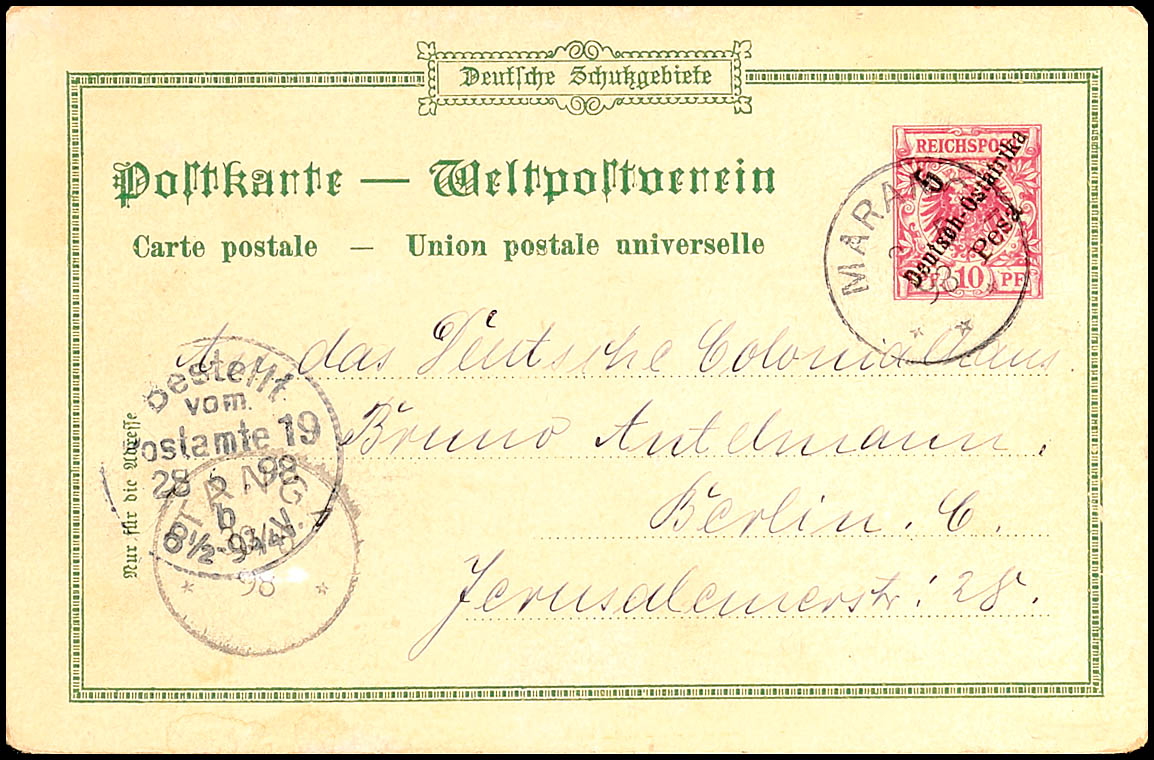 Deutsche Schutzgebiete
Postkarte — Weltpostverein
Carte postale — Union postale universelle
REICHSPOST
5
Deutsch-Ostafrika
Pesa
10 PF
98
An das Deutsche Colonialhaus.
Bruno Antelmann.
Berlin. C.
Jerusalemerstr: 28.
Nur für die Adresse
Bestellt
vom
Postamte 19
28 98
b
8½-9¾V.
TANGA
98